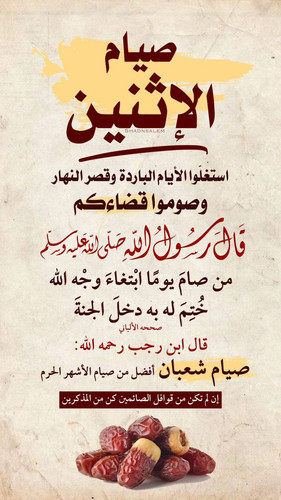 صيام
الإثنين
SHADHASALEM
استغلّوا الأيام الباردة وقصر النهار
وصوموا قضاءكم
قَالَ رَسُولُ اللّهِ صَلّى اللّهُ عَلَيْهِ وَسَلَّم
من صامَ يومًا ابْتغاءَ وجْه الله
خُتِمَ له به دخلَ الجنةَ
صححه الألباني
قال ابن رجب رحمه الله:
صيام شعبان أفضل من صيام الأشهر الحرم
إن لم تكن من قوافل الصائمين كن من المذكرين